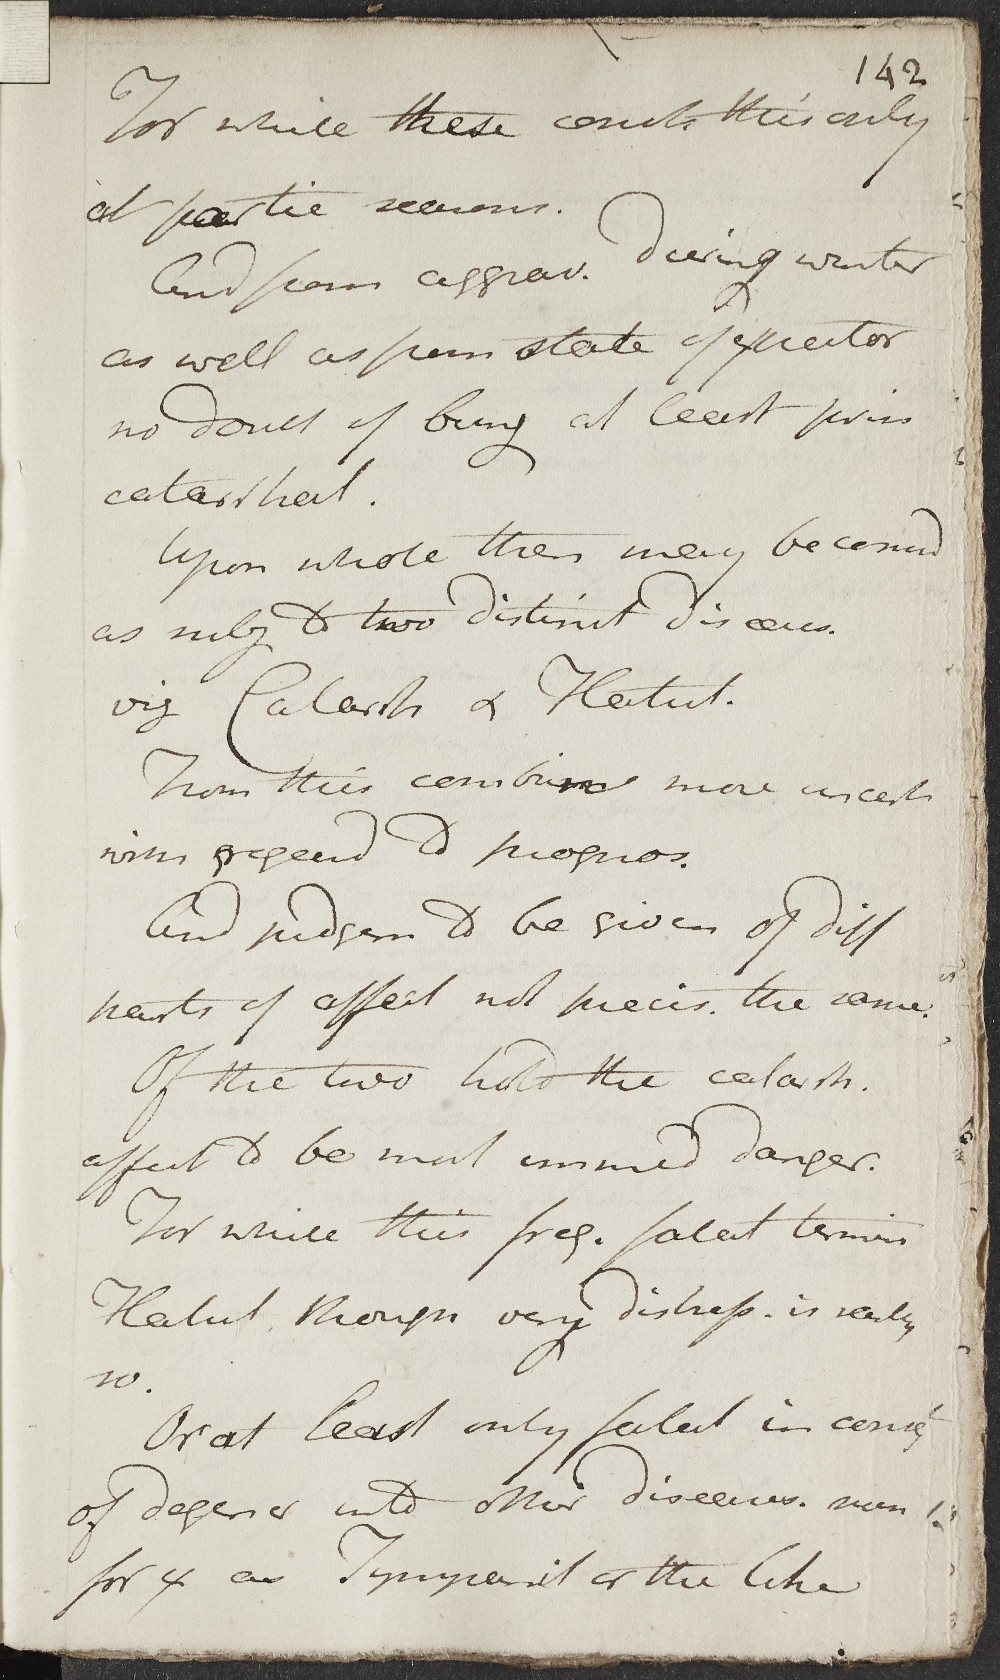 142
For while these const. this only
at partic seasons.
And from aggrav. during winter
as well as from state of expector
no doubt of being at least prim
catarrhal.
Upon whole then may be consid
as subj to two distinct diseas.
viz Catarrh & Flatul.
From this combin more uncert
with regard to prognos.
And judgem to be given of diff
parts of affect not precis. the same.
Of the two hold the catarrh.
affect to be most immed danger.
For while this freq. fatal termin
Flatul. though very distress. is rarely
so.
Or at least only fatal in conseq
of degener into other diseases.
for as Tympanit or the like